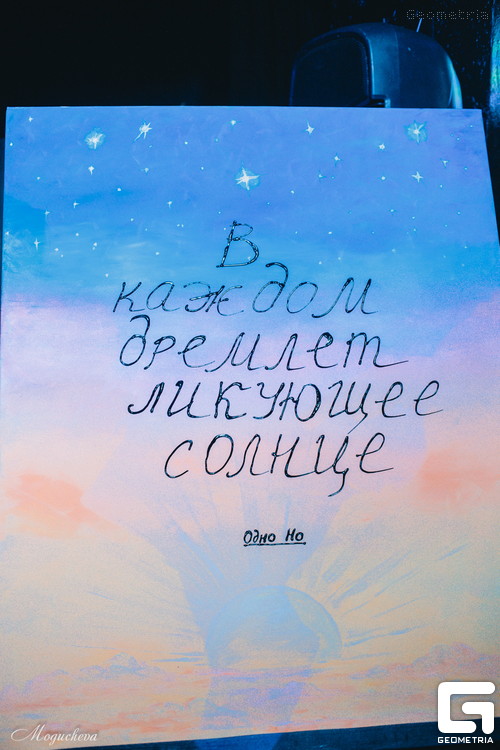 Geometria
В
каждом
дремлет
ликующее
солнце
Одно Но
Mogucheva
GEOMETRIA